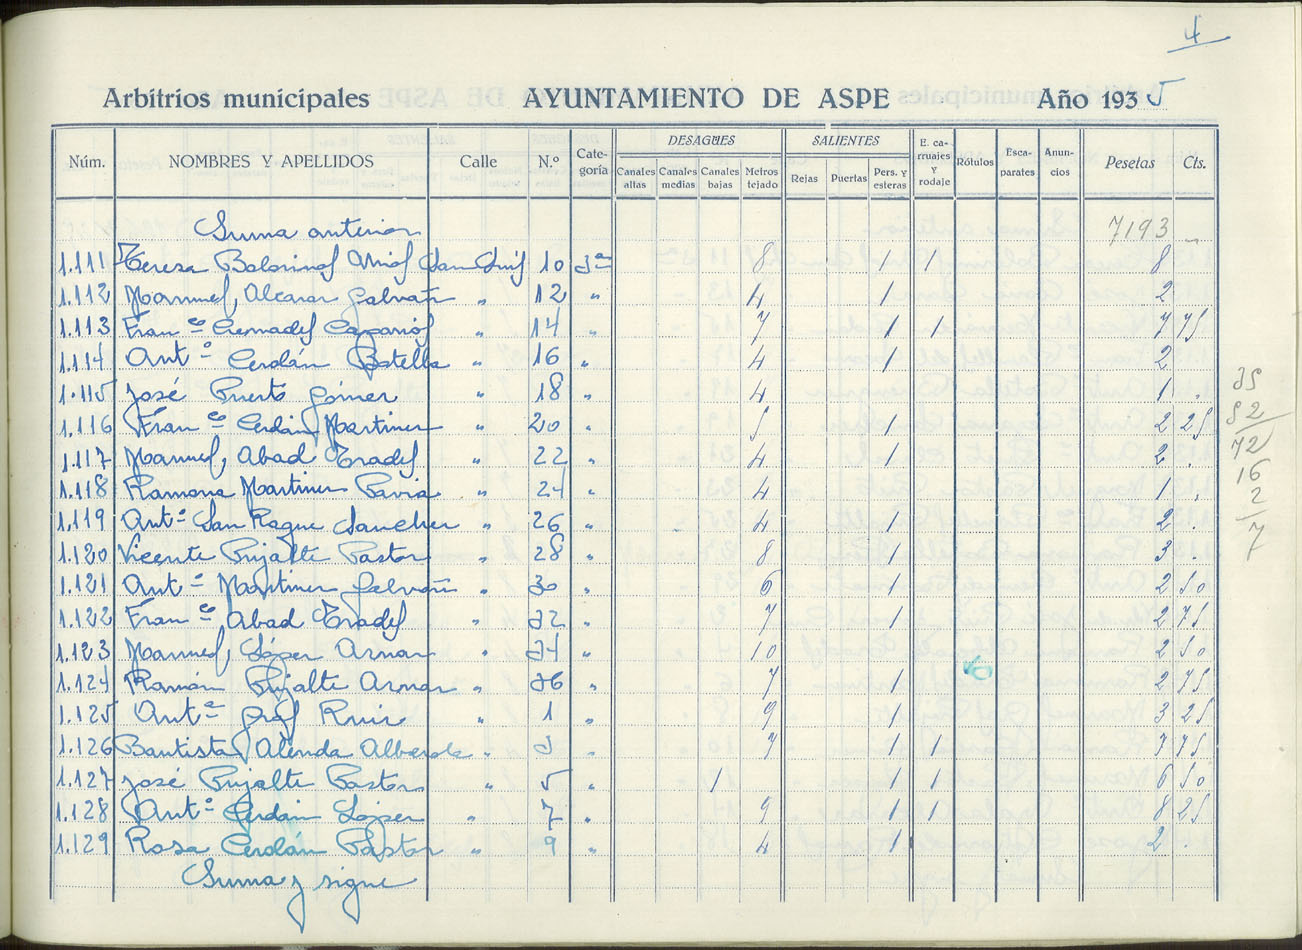 4
Arbitrios municipales AYUNTAMIENTO DE ASPE Año 1935
Núm. NOMBRES Y APELLIDOS Calle N.º Cate-goría DESAGÜES Canales altas Canales medias Canales bajas Metros tejado SALIENTES Rejas Puertas Pers. y esteras E. ca-rruajes y rodaje Rótulos Esca-parates Anun-cios Pesetas Cts.
Suma anterior 7193 -
1.111 Teresa San Luis 10 3ª 8 1 1 8 .
1.112 Manuel Alcaraz Galvañ " 12 " 4 1 2 .
1.113 Franco Cremades " 14 " 7 1 1 7 75
1.114 Antº Cerdán Botella " 16 " 4 1 2 .
1.115 José Puerto Gómez " 18 " 4 1 .
1.116 Franco Cerdán Martinez " 20 " 5 1 2 25
1.117 Manuel Abad Prades " 22 " 4 1 2 .
1.118 Ramona Martinez Pavia " 24 " 4 1 .
1.119 Antº San Roque Sanchez " 26 " 4 1 2 .
1.120 Vicente Pujalte Pastor " 28 " 8 1 3 .
1.121 Antº Martinez Galvañ " 30 " 6 1 2 50
1.122 Franco Abad Prades " 32 " 7 1 2 75
1.123 Manuel López Aznar " 34 " 10 2 50
1.124 Ramón Pujalte Aznar " 36 " 7 1 2 75
1.125 Antª Gras Ruiz " 1 " 9 1 3 25
1.126 Bautista Alenda Alberola " 3 " 7 1 1 7 75
1.127 José Pujalte Pastor " 5 " 1 1 1 6 50
1.128 Antº Cerdán López " 7 " 9 1 1 8 25
1.129 Rosa Cerdán Pastor " 9 " 4 1 2 .
Suma y sigue
35
52
72
16
2
7